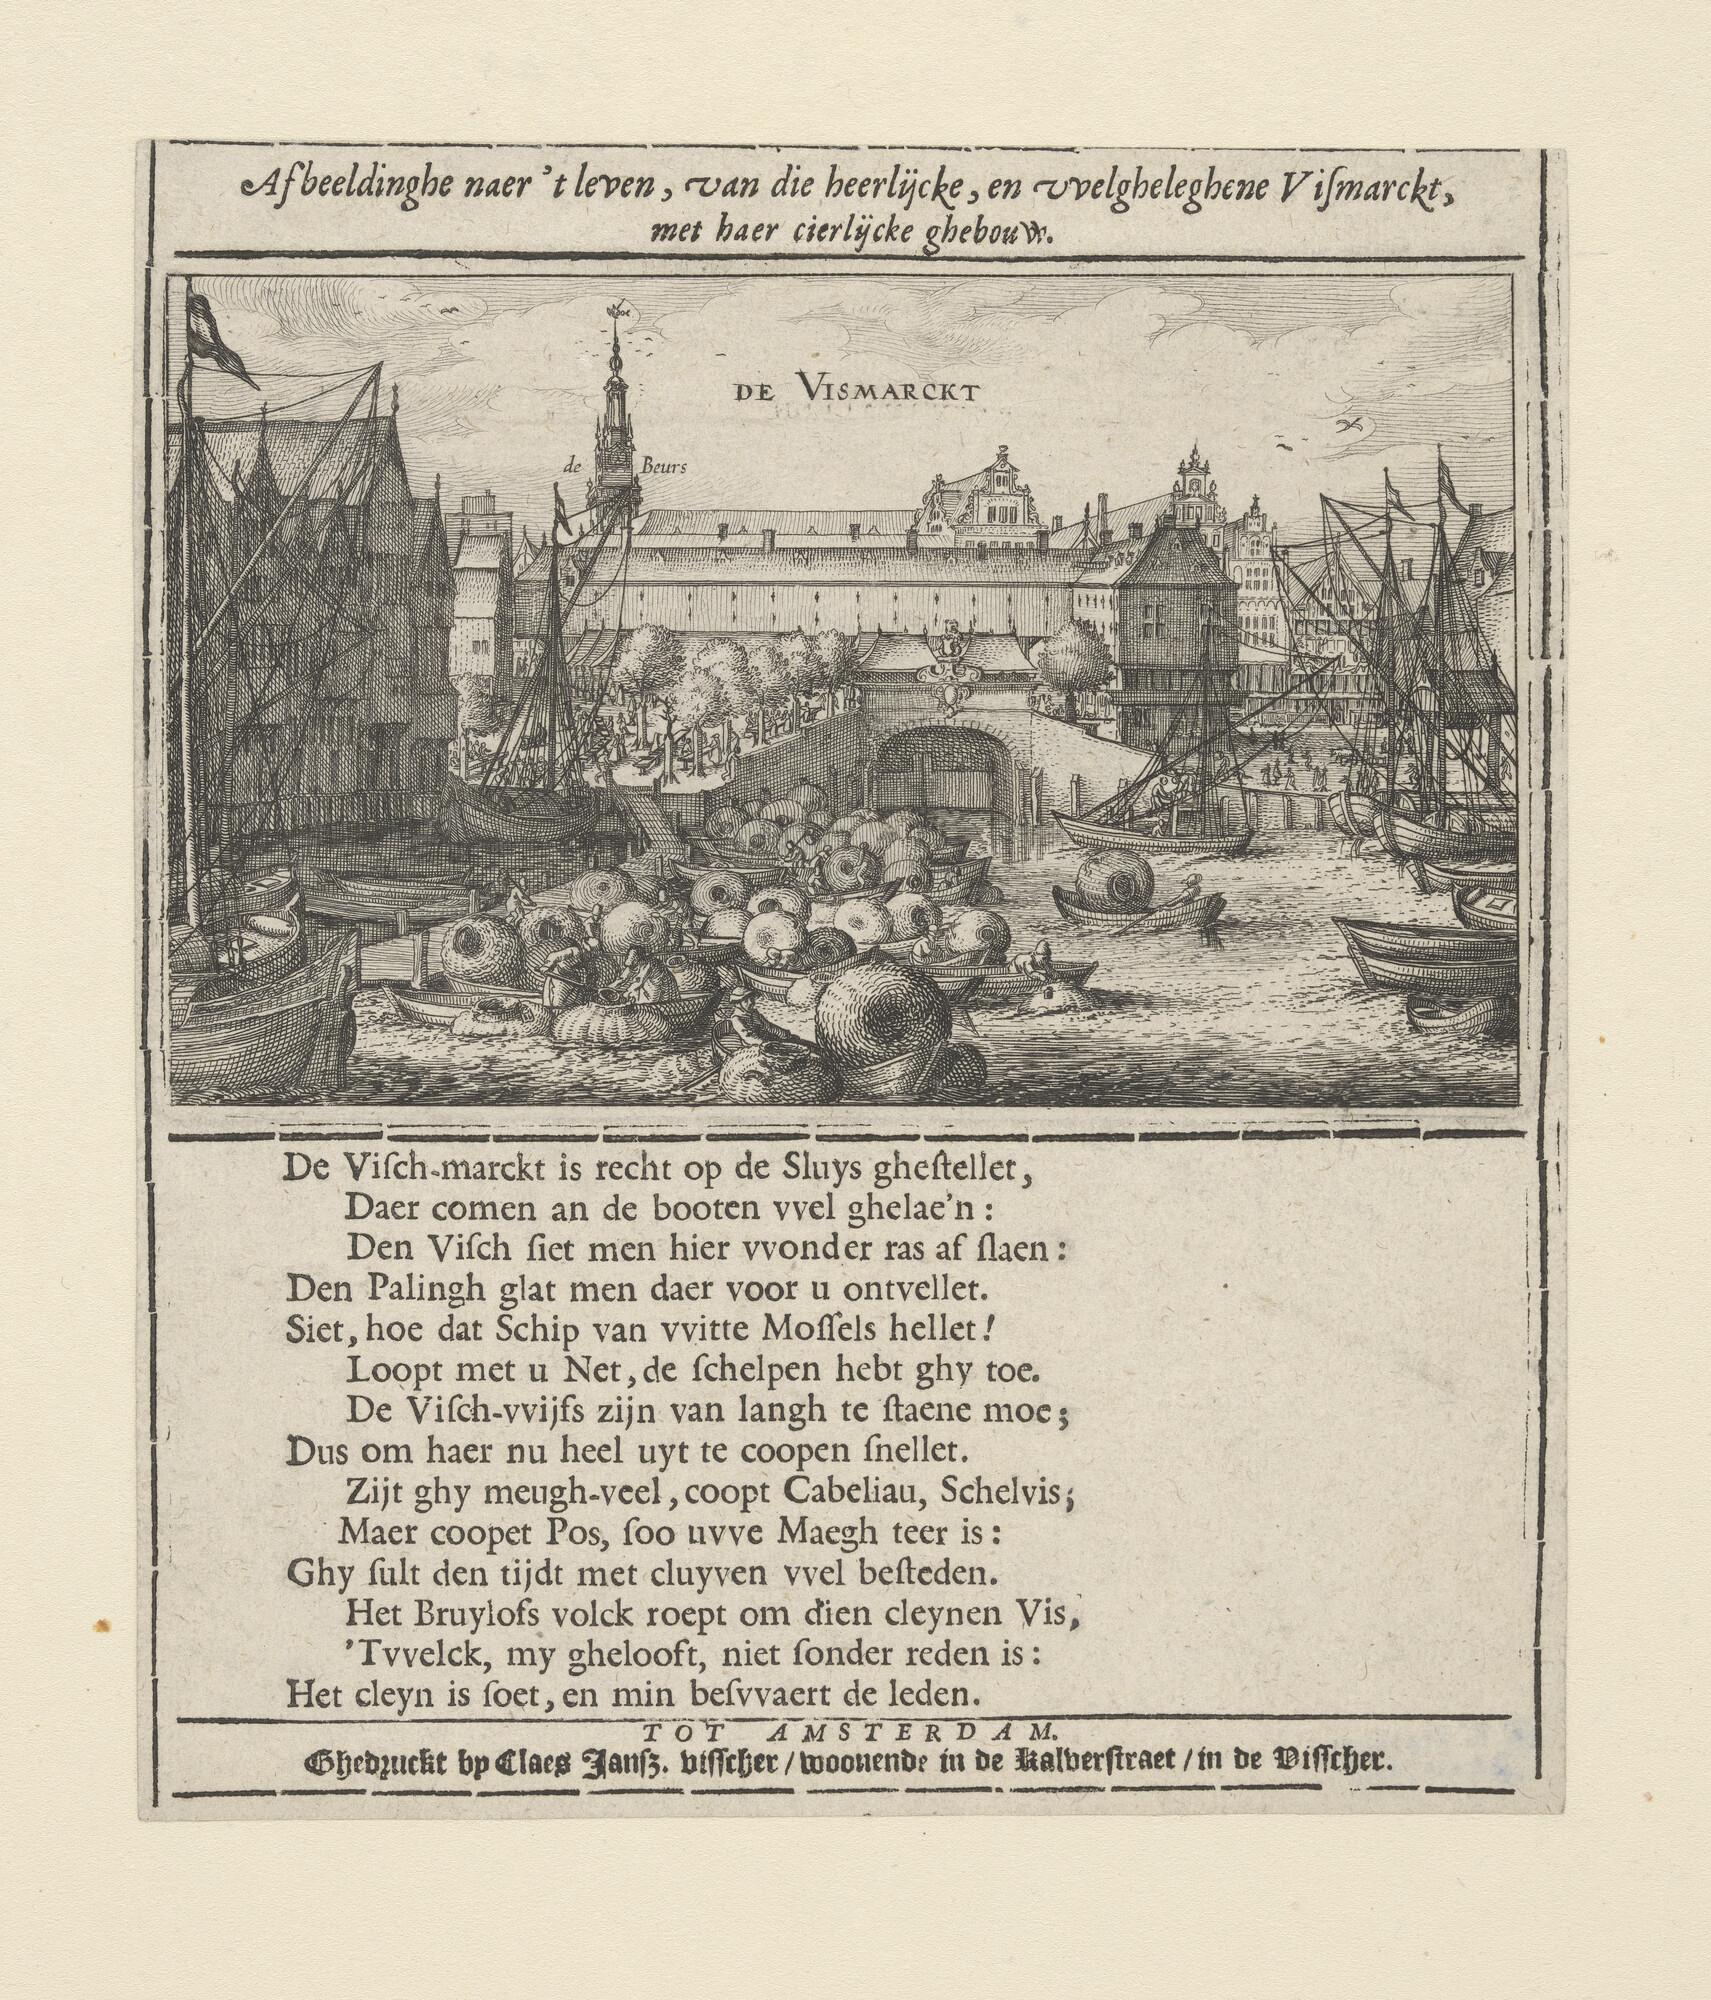 Afbeeldinghe naer 't leven, van die heerlijcke, en vvelgheleghene Viſmarckt,
met haer cierlijcke ghebouw.
DE VISMARCKT
de Beurs
De Viſch-marckt is recht op de Sluys gheſtellet,
Daer comen an de booten vvel ghelae'n :
Den Viſch ſiet men hier vvonder ras af ſlaen :
Den Palingh glat men daer voor u ontvellet.
Siet, hoe dat Schip van vvitte Moſſels hellet!
Loopt met u Net, de ſchelpen hebt ghy toe.
De Viſch-vvijfs zijn van langh te ſtaene moe;
Dus om haer nu heel uyt te coopen ſnellet.
Zijt ghy meugh-veel, coopt Cabeliau, Schelvis;
Maer coopet Pos, ſoo uvve Maegh teer is :
Ghy ſult den tijdt met cluyven vvel beſteden.
Het Bruylofs volck roept om dien cleynen Vis,
'Tvvelck, my ghelooft, niet ſonder reden is :
Het cleyn is ſoet, en min beſvvaert de leden.
TOT AMSTERDAM.
Ghedruckt by Claes Janſz. viſſcher / woonende in de Kalverſtraet / in de Viſſcher.